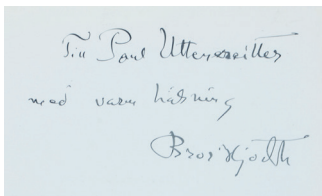 Till Paul Utterwitter
med varm hälsning
Bror Hjorth